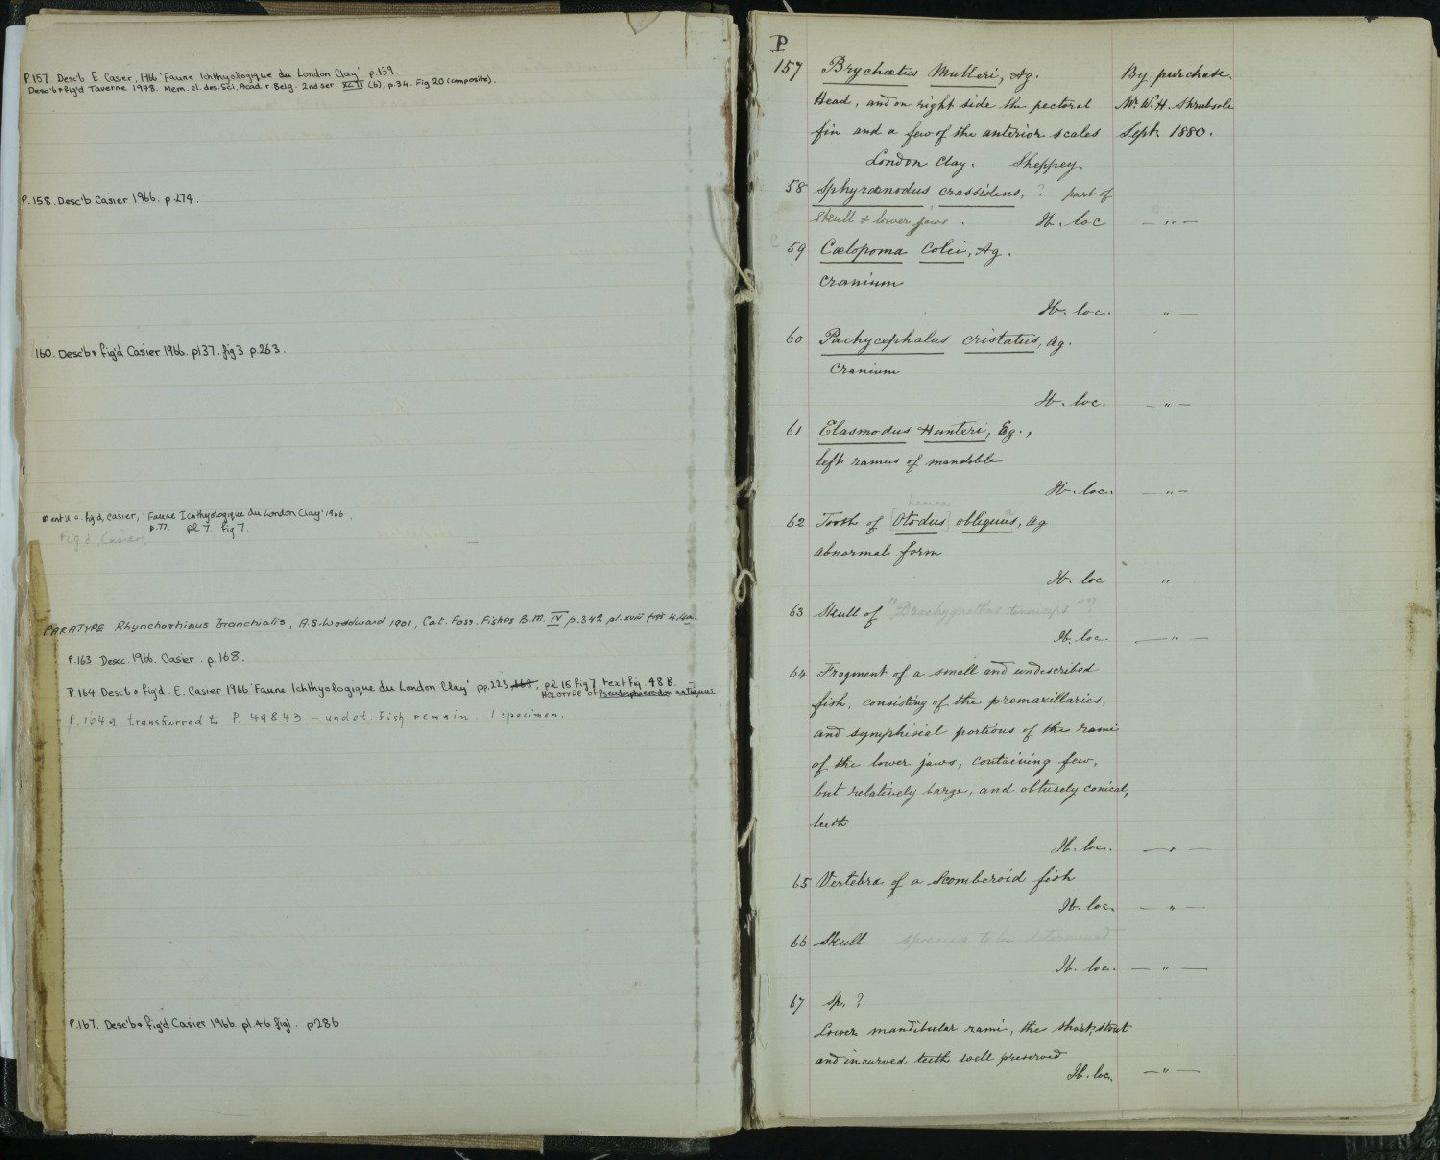 P.157. Desc'b E. Casier, 1966 'Faune Ichthyologique du London Clay' p.159.
Desc'b & fig'd Taverne 1978. Mem. cl. des. Sci. Acad. r. Belg. 2nd ser XLII (6). p.34. Fig 20 (composite).
P.158. Desc'b Casier 1966. p.279.
160. Desc'b & fig'd Casier 1966. pl 37. fig 3 p.263.
Ment'd & fig'd, Casier, 'Faune Ichthyologique du London Clay' 1966.
p.77. pl 7. fig 7.
Fig'd, Casier.
PARATYPE Rhynchorhinus branchialis, A.S. Woodward 1901, Cat. Foss. Fishes B.M. IV p.342 pl. xviii figs 4,4a.
P.163 Desc. 1966. Casier. p.168.
P 164 Desc'b & fig'd. E. Casier 1966 'Faune Ichthyologique du London Clay' pp.223, pl 15 fig 7 text fig. 48 B.
Holotype of antiquus
P.164a transferred to P. 49843 - undet. Fish remain. 1 specimen.
P.167. Desc'b & fig'd Casier 1966. pl.46 fig 1. p286
P
157 Brychætus Mulleri, Ag. By purchase.
Head, and on right side the pectoral Mr. W.H. Shrubsole
fin and a few of the anterior scales Sept. 1880.
London Clay. Sheppey.
58 Sphyrænodus crassidens, ? part of
skull & lower jaws. Ib. loc — " —
59 Cœlopoma Colei, Ag.
cranium
Ib. loc. " —
60 Pachycephalus cristatus, Ag.
Cranium
Ib. loc. — " —
61 Elasmodus Hunteri, Eg.,
left ramus of mandible
Ib. loc. — " —
62 Tooth of [Otodus] obliquus, Ag
abnormal form
Ib. loc "
63 Skull of "Brachygnathus tenuiceps" ?
Ib. loc. — " —
64 Fragment of a small and undescribed
fish, consisting of the premaxillaries
and symphisial portions of the rami
of the lower jaws, containing few,
but relatively large, and obtusely conical,
teeth
Ib. loc. — " —
65 Vertebra of a Scomberoid fish
Ib. loc. — " —
66 Skull species to be determined
Ib. loc. — " —
67 sp. ?
Lower mandibular rami, the short, stout
and incurved teeth well preserved
Ib. loc. — " —